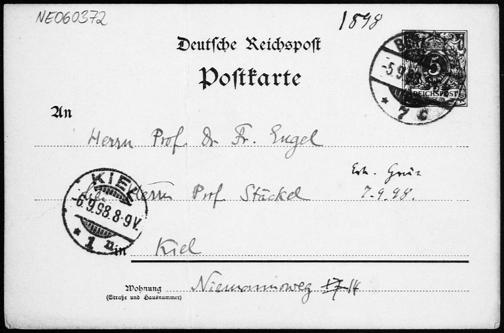 NE060372
1898
Deutsche Reichspost
Postkarte
5
REICHSPOST
-5.9.98
* 7 c
An
Herrn Prof Dr Fr. Engel
Herrn Prof Stäckel
7.9.98.
KIEL
-6.9.98.8-9V.
* 1
in Kiel
Wohnung
(Straße und Hausnummer)
Niemannsweg 14